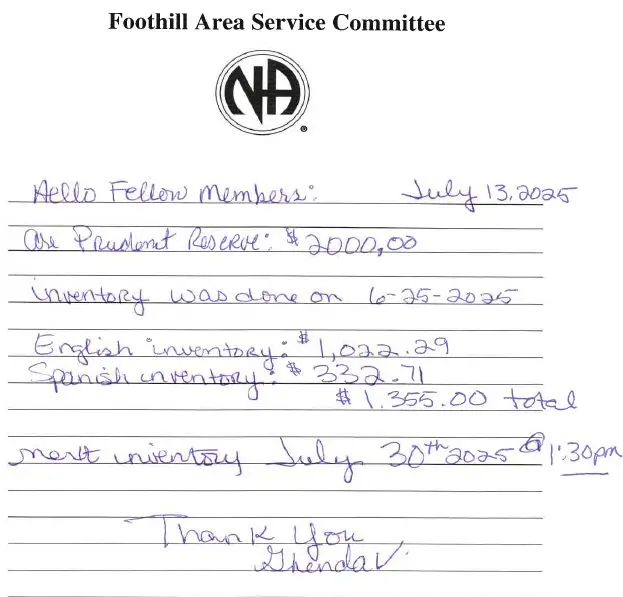 Foothill Area Service Committee
NA
®
Hello Fellow Members: July 13, 2025
are Prudent Reserve: $2000,00
inventory was done on 6-25-2025
English inventory: $1,022.29
Spanish inventory: $332.71
$1.355.00 total
next inventory July 30th 2025 @ 1:30pm
Thank You
Ghenda V.